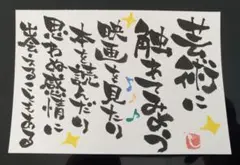 芸術に
触れてみよう
映画を見たり
本を読んだり
思わぬ感情に
出会えることもある